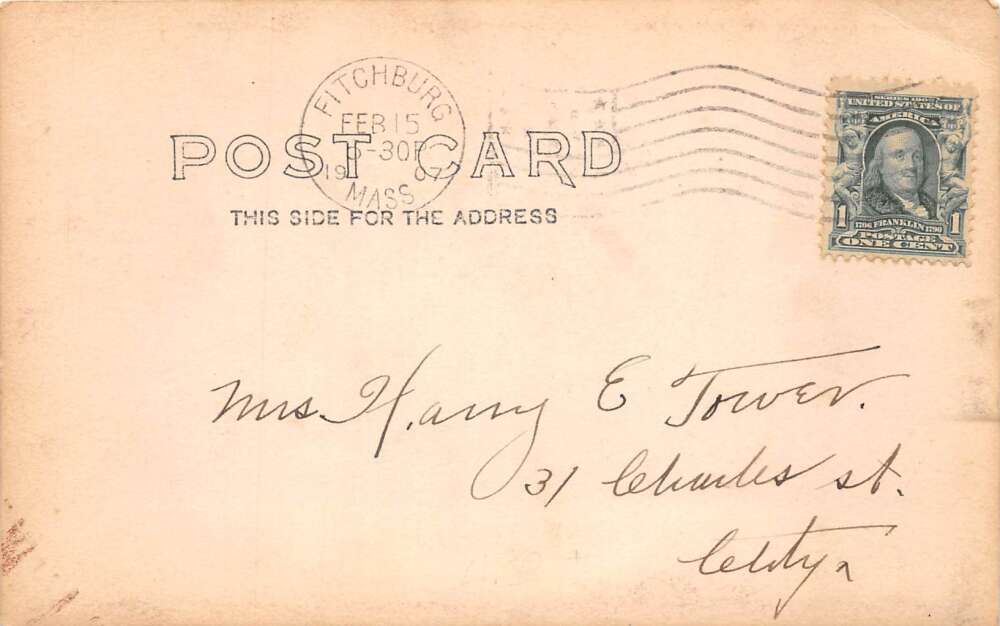 FITCHBURG
FEB 15
-30P
1907
MASS
POST CARD
THIS SIDE FOR THE ADDRESS
UNITED STATES OF
AMERICA
1 1
FRANKLIN 1790
POSTAGE
ONE CENT
Mrs. Harry E Tower.
31 Charles st.
City